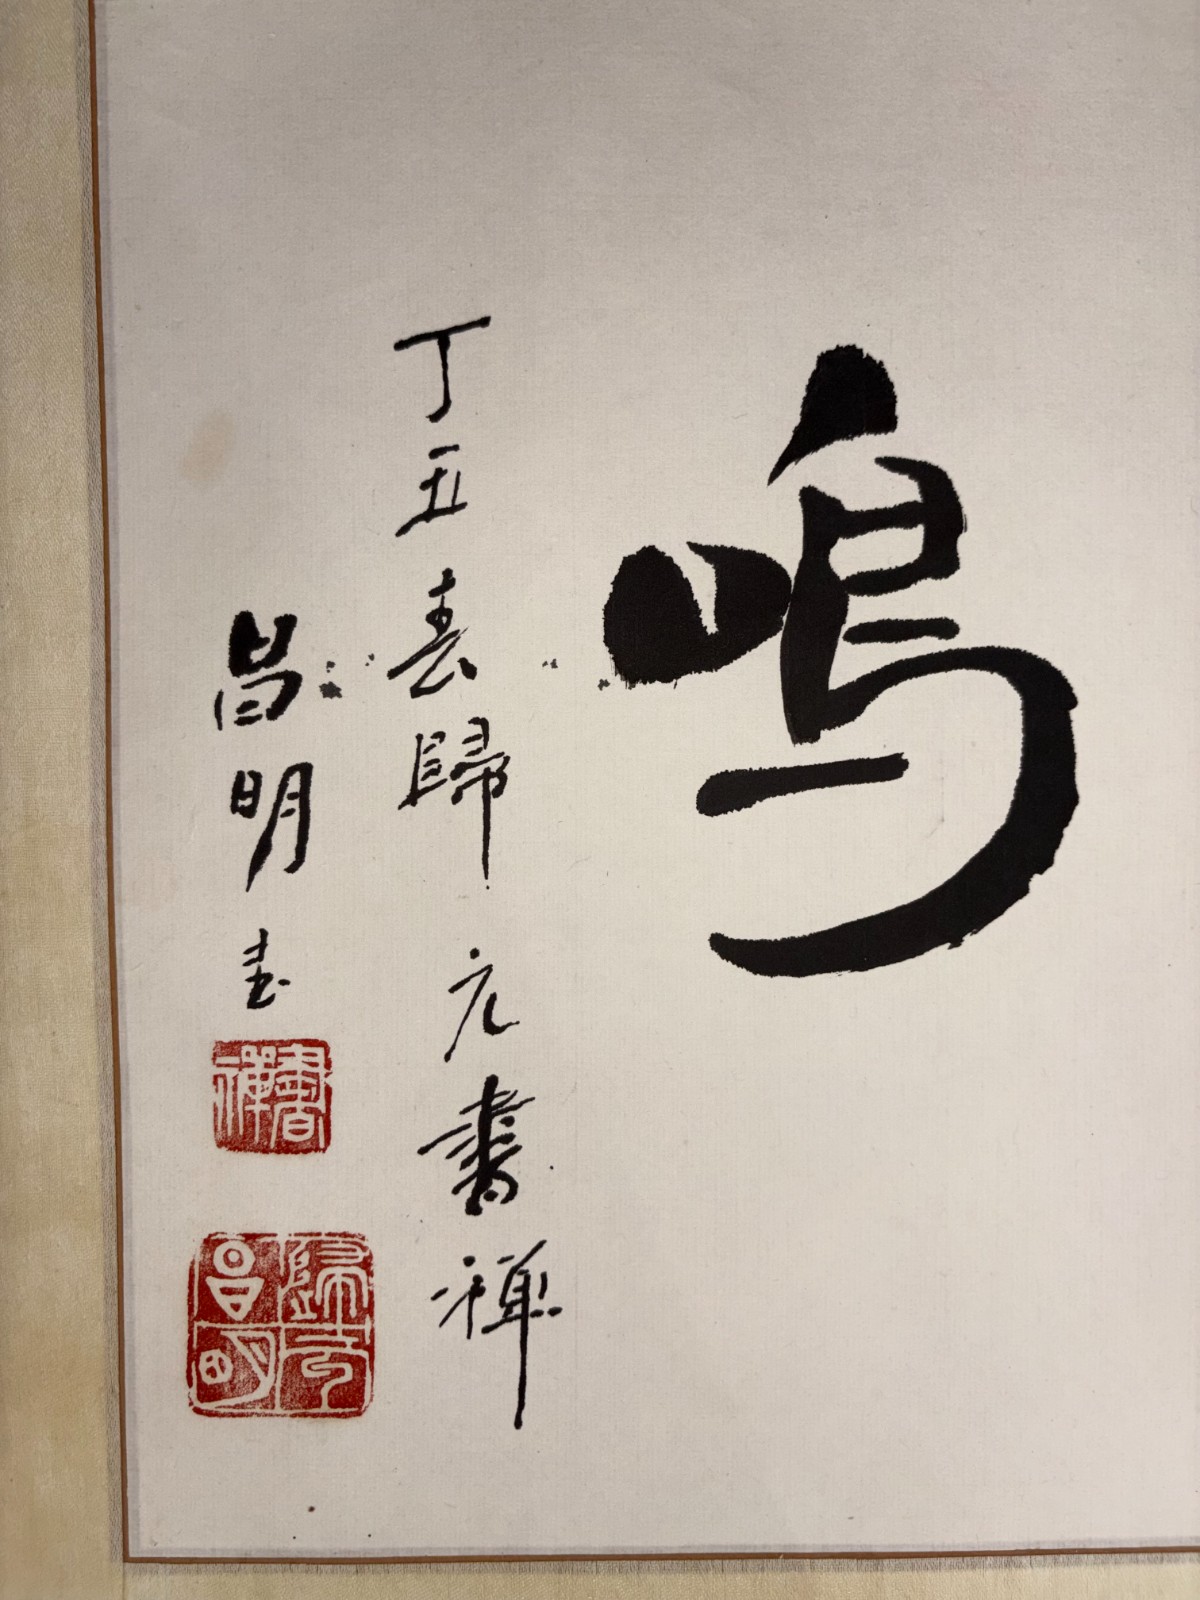 鳴
丁丑春歸元書禪
昌明書
書禪
歸元昌明